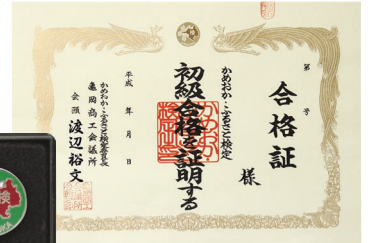 第　号
合格証
様
かめおか・ふるさと検定
初級合格を証明する
平成　年　月　日
かめおか・ふるさと検定委員長
亀岡商工会議所
会頭　渡辺裕文
検